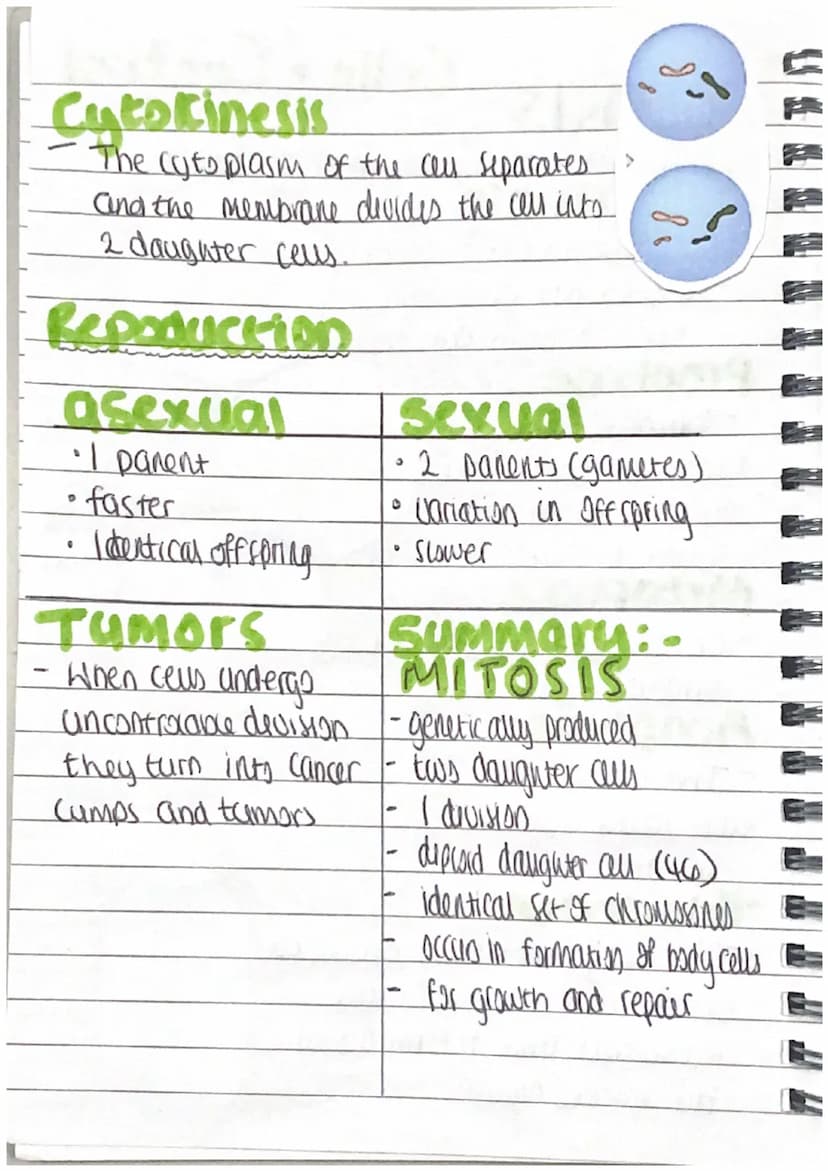 Cytokinesis
- The cytoplasm of the cell separates
and the membrane divides the cell into
2 daughter cells.
Repoduction
asexual
• 1 parent
• faster
• Identical offspring
sexual
• 2 parents (gametes)
• variation in offspring
• slower
Tumors
- When cells undergo
uncontrolable devision
they turn into cancer
lumps and tumors
Summary:-
MITOSIS
- genetically produced
- two daughter cells
- 1 division
- diploid daughter cell (46)
- identical set of chromosomes
- occurs in formation of body cells
- for growth and repair